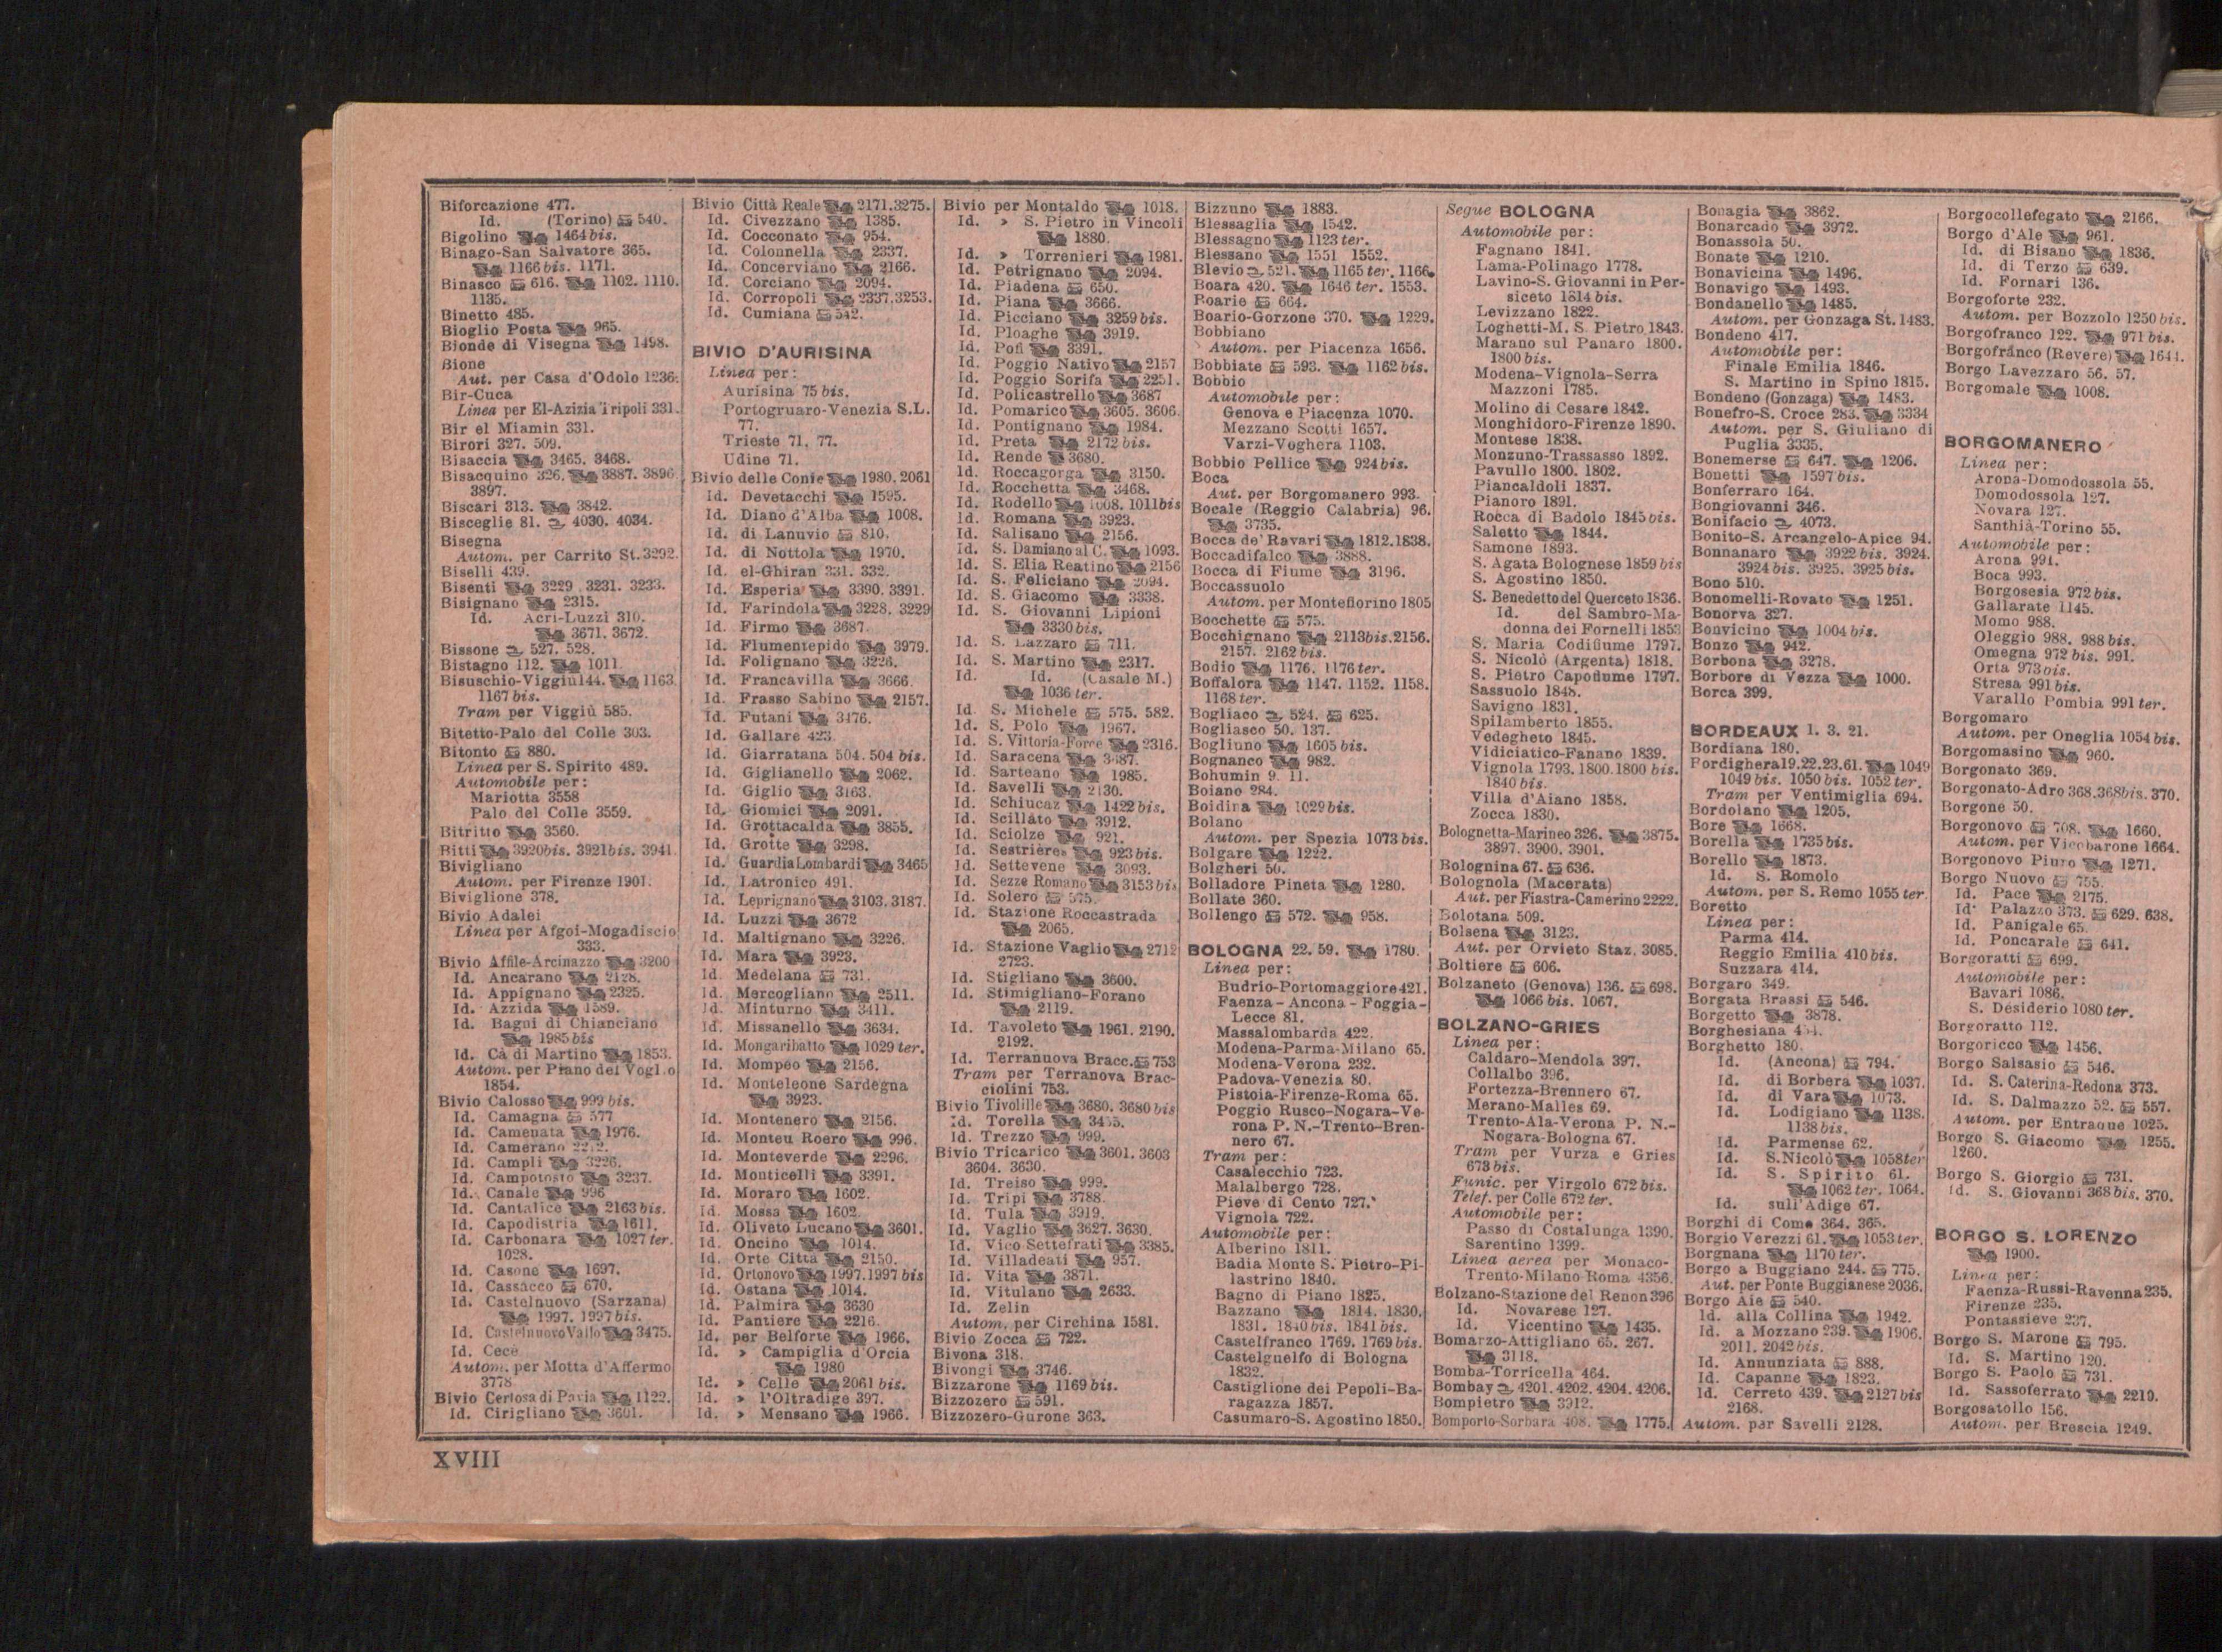 Biforcazione 477.
Id. (Torino) 540.
Bigolino 1464 bis.
Binago-San Salvatore 365.
1166 bis. 1171.
Binasco 616. 1102. 1110.
1135.
Binetto 485.
Bioglio Posta 965.
Bionde di Visegna 1498.
Bione
Aut. per Casa d'Odolo 1236.
Bir-Cuca
Linea per El-Azizia Tripoli 331.
Bir el Miamin 331.
Birori 327. 509.
Bisaccia 3465. 3468.
Bisacquino 326. 3887. 3896
3897.
Biscari 313. 3842.
Bisceglie 81. 4030. 4034.
Bisegna
Autom. per Carrito St. 3292.
Biselli 439.
Bisenti 3229. 3231. 3233.
Bisignano 2315.
Id. Acri-Luzzi 310.
3671. 3672.
Bissone 527. 528.
Bistagno 112. 1011.
Bisuschio-Viggiù 144. 1163.
1167 bis.
Tram per Viggiù 585.
Bitetto-Palo del Colle 303.
Bitonto 880.
Linea per S. Spirito 489.
Automobile per:
Mariotta 3558
Palo del Colle 3559.
Bitritto 3560.
Bitti 3920bis. 3921bis. 3941.
Bivigliano
Autom. per Firenze 1901.
Biviglione 378.
Bivio Adalei
Linea per Afgoi-Mogadiscio
333.
Bivio Affile-Arcinazzo 3200
Id. Ancarano 2128.
Id. Appignano 2325.
Id. Azzida 1589.
Id. Bagni di Chianciano
1985 bis
Id. Cà di Martino 1853.
Autom. per Piano del Voglio
1854.
Bivio Calosso 999 bis.
Id. Camagna 577
Id. Camenata 1976.
Id. Camerano
Id. Campli 3226.
Id. Campotosto 3237.
Id. Canale 996
Id. Cantalice 2163 bis.
Id. Capodistria 1611.
Id. Carbonara 1027 ter.
1028.
Id. Casone 1697.
Id. Cassacco 670.
Id. Castelnuovo (Sarzana)
1997. 1997 bis.
Id. Castelnuovo Vallo 3475.
Id. Cece
Autom. per Motta d'Affermo
3778
Bivio Certosa di Pavia 1122.
Id. Cirigliano 3601.
Bivio Città Reale 2171. 3275.
Id. Civezzano 1385.
Id. Cocconato 954.
Id. Colonnella 2337.
Id. Concerviano 2166.
Id. Corciano 2094.
Id. Corropoli 2337. 3253.
Id. Cumiana 542.
BIVIO D'AURISINA
Linea per:
Aurisina 75 bis.
Portogruaro-Venezia S.L.
77.
Trieste 71. 77.
Udine 71.
Bivio delle Conie 1980. 2061
Id. Devetacchi 1595.
Id. Diano d'Alba 1008.
Id. di Lanuvio 810.
Id. di Nottola 1970.
Id. el-Ghiran 331. 332.
Id. Esperia 3390. 3391.
Id. Farindola 3228. 3229
Id. Firmo 3687.
Id. Flumentepido 3979.
Id. Folignano 3226.
Id. Francavilla 3666.
Id. Frasso Sabino 2157.
Id. Futani 3476.
Id. Gallare 423.
Id. Giarratana 504. 504 bis.
Id. Giglianello 2062.
Id. Giglio 3163.
Id. Giomici 2091.
Id. Grottacalda 3855.
Id. Grotte 3298.
Id. Guardia Lombardi 3465
Id. Latronico 491.
Id. Leprignano 3103. 3187.
Id. Luzzi 3672
Id. Maltignano 3226.
Id. Mara 3923.
Id. Medelana 731.
Id. Mercogliano 2511.
Id. Minturno 3411.
Id. Missanello 3634.
Id. Mongaribatto 1029 ter.
Id. Mompeo 2156.
Id. Monteleone Sardegna
3923.
Id. Montenero 2156.
Id. Monteu Roero 996.
Id. Monteverde 2296.
Id. Monticelli 3391.
Id. Moraro 1602.
Id. Mossa 1602
Id. Oliveto Lucano 3601.
Id. Oncino 1014.
Id. Orte Città 2150.
Id. Ortonovo 1997. 1997 bis
Id. Ostana 1014.
Id. Palmira 3630
Id. Pantiere 2216.
Id. per Belforte 1966.
Id. » Campiglia d'Orcia
1980
Id. » Celle 2061 bis.
Id. » l'Oltradige 397.
Id. » Mensano 1966.
Bivio per Montaldo 1018.
Id. » S. Pietro in Vincoli
1880.
Id. » Torrenieri 1981.
Id. Petrignano 2094.
Id. Piadena 650.
Id. Piana 3666.
Id. Picciano 3259 bis.
Id. Ploaghe 3919.
Id. Pofi 3391.
Id. Poggio Nativo 2157
Id. Poggio Sorifa 2251.
Id. Policastrello 3687
Id. Pomarico 3605. 3606.
Id. Pontignano 1984.
Id. Preta 2172 bis.
Id. Rende 3680.
Id. Roccagorga 3150.
Id. Rocchetta 3468.
Id. Rodello 1008. 1011bis
Id. Romana 3923.
Id. Salisano 2156.
Id. S. Damiano al C. 1093.
Id. S. Elia Reatino 2156
Id. S. Feliciano 2094.
Id. S. Giacomo 3338.
Id. S. Giovanni Lipioni
3330 bis.
Id. S. Lazzaro 711.
Id. S. Martino 2317.
Id. Id. (Casale M.)
1036 ter.
Id. S. Michele 575. 582.
Id. S. Polo 1967.
Id. S. Vittoria-Force 2316.
Id. Saracena 3687.
Id. Sarteano 1985.
Id. Savelli 2130.
Id. Schiucaz 1422 bis.
Id. Scillato 3912.
Id. Sciolze 921.
Id. Sestrières 923 bis.
Id. Settevene 3093.
Id. Sezze Romano 3153 bis
Id. Solero 575.
Id. Stazione Roccastrada
2065.
Id. Stazione Vaglio 2712
2723.
Id. Stigliano 3600.
Id. Stimigliano-Forano
2119.
Id. Tavoleto 1961. 2190.
2192.
Id. Terranuova Bracc. 753
Tram per Terranova Brac-
ciolini 753.
Bivio Tivolille 3680. 3680 bis
Id. Torella
Id. Trezzo 999.
Bivio Tricarico 3601. 3603
3604. 3630.
Id. Treiso 999.
Id. Tripi 3788.
Id. Tula 3919.
Id. Vaglio 3627. 3630.
Id. Vico Settefrati 3385.
Id. Villadeati 957.
Id. Vita 3871.
Id. Vitulano 2633.
Id. Zelin
Autom. per Circhina 1581.
Bivio Zocca 722.
Bivona 318.
Bivongi 3746.
Bizzarone 1169 bis.
Bizzozero 591.
Bizzozero-Gurone 363.
Bizzuno 1883.
Blessaglia 1542.
Blessagno 1123 ter.
Blessano 1551 1552.
Blevio 521. 1165 ter. 1166.
Boara 420. 1646 ter. 1553.
Boarie 664.
Boario-Gorzone 370. 1229.
Bobbiano
Autom. per Piacenza 1656.
Bobbiate 593. 1162 bis.
Bobbio
Automobile per:
Genova e Piacenza 1070.
Mezzano Scotti 1657.
Varzi-Voghera 1103.
Bobbio Pellice 924 bis.
Boca
Aut. per Borgomanero 993.
Bocale (Reggio Calabria) 96.
3735.
Bocca de' Ravari 1812. 1838.
Boccadifalco 3888.
Bocca di Fiume 3196.
Boccassuolo
Autom. per Montefiorino 1805
Bocchette 575.
Bocchignano 2113bis. 2156.
2157. 2162 bis.
Bodio 1176. 1176 ter.
Boffalora 1147. 1152. 1158.
1168 ter.
Bogliaco 524. 625.
Bogliasco 50. 137.
Bogliuno 1605 bis.
Bognanco 982.
Bohumin 9. 11.
Boiano 284.
Boidira 1029 bis.
Bolano
Autom. per Spezia 1073 bis.
Bolgare 1222.
Bolgheri 50.
Bolladore Pineta 1280.
Bollate 360.
Bollengo 572. 958.
BOLOGNA 22. 59. 1780.
Linea per:
Budrio-Portomaggiore 421.
Faenza - Ancona - Foggia -
Lecce 81.
Massalombarda 422.
Modena-Parma-Milano 65.
Modena-Verona 232.
Padova-Venezia 80.
Pistoia-Firenze-Roma 65.
Poggio Rusco-Nogara-Ve-
rona P. N.-Trento-Bren-
nero 67.
Tram per:
Casalecchio 723.
Malalbergo 728.
Pieve di Cento 727.
Vignola 722.
Automobile per:
Alberino 1811.
Badia Monte S. Pietro-Pi-
lastrino 1840.
Bagno di Piano 1825.
Bazzano 1814. 1830.
1831. 1840 bis. 1841 bis.
Castelfranco 1769. 1769 bis.
Castelguelfo di Bologna
1832.
Castiglione dei Pepoli-Ba-
ragazza 1857.
Casumaro-S. Agostino 1850.
Segue BOLOGNA
Automobile per:
Fagnano 1841.
Lama-Polinago 1778.
Lavino-S. Giovanni in Per-
siceto 1814 bis.
Levizzano 1822.
Loghetti-M. S. Pietro 1843.
Marano sul Panaro 1800.
1800 bis.
Modena-Vignola-Serra
Mazzoni 1785.
Molino di Cesare 1842.
Monghidoro-Firenze 1890.
Montese 1838.
Monzuno-Trassasso 1892.
Pavullo 1800. 1802.
Piancaldoli 1837.
Pianoro 1891.
Rocca di Badolo 1845 bis.
Saletto 1844.
Samone 1893.
S. Agata Bolognese 1859 bis
S. Agostino 1850.
S. Benedetto del Querceto 1836.
Id. del Sambro-Ma-
donna dei Fornelli 1853
S. Maria Codifiume 1797.
S. Nicolò (Argenta) 1818.
S. Pietro Capofiume 1797.
Sassuolo 1848.
Savigno 1831.
Spilamberto 1855.
Vedegheto 1845.
Vidiciatico-Fanano 1839.
Vignola 1793. 1800. 1800 bis.
1840 bis.
Villa d'Aiano 1858.
Zocca 1830.
Bolognetta-Marineo 326. 3875.
3897. 3900. 3901.
Bolognina 67. 636.
Bolognola (Macerata)
Aut. per Fiastra-Camerino 2222.
Bolotana 509.
Bolsena 3123.
Aut. per Orvieto Staz. 3085.
Boltiere 606.
Bolzaneto (Genova) 136. 698.
1066 bis. 1067.
BOLZANO-GRIES
Linea per:
Caldaro-Mendola 397.
Collalbo 396.
Fortezza-Brennero 67.
Merano-Malles 69.
Trento-Ala-Verona P. N.-
Nogara-Bologna 67.
Tram per Vurza e Gries
673 bis.
Funic. per Virgolo 672 bis.
Telef. per Colle 672 ter.
Automobile per:
Passo di Costalunga 1390.
Sarentino 1399.
Linea aerea per Monaco-
Trento-Milano Roma 4356.
Bolzano-Stazione del Renon 396
Id. Novarese 127.
Id. Vicentino 1435.
Bomarzo-Attigliano 65. 267.
3118.
Bomba-Torricella 464.
Bombay 4201. 4202. 4204. 4206.
Bompietro 3912.
Bomporto-Sorbara 408. 1775.
Bonagia 3862.
Bonarcado 3972.
Bonassola 50.
Bonate 1210.
Bonavicina 1496.
Bonavigo 1493.
Bondanello 1485.
Autom. per Gonzaga St. 1483.
Bondeno 417.
Automobile per:
Finale Emilia 1846.
S. Martino in Spino 1815.
Bondeno (Gonzaga) 1483.
Bonefro-S. Croce 283. 3334
Autom. per S. Giuliano di
Puglia 3335.
Bonemerse 647. 1206.
Bonetti 1597 bis.
Bonferraro 164.
Bongiovanni 346.
Bonifacio 4073.
Bonito-S. Arcangelo-Apice 94.
Bonnanaro 3922 bis. 3924.
3924 bis. 3925. 3925 bis.
Bono 510.
Bonomelli-Rovato 1251.
Bonorva 327.
Bonvicino 1004 bis.
Bonzo 942.
Borbona 3278.
Borbore di Vezza 1000.
Borca 399.
BORDEAUX 1. 3. 21.
Bordiana 180.
Bordighera 19. 22. 23. 61. 1049
1049 bis. 1050 bis. 1052 ter.
Tram per Ventimiglia 694.
Bordolano 1205.
Bore 1668.
Borella 1735 bis.
Borello 1873.
Id. S. Romolo
Autom. per S. Remo 1055 ter
Boretto
Linea per:
Parma 414.
Reggio Emilia 410 bis.
Suzzara 414.
Borgaro 349.
Borgata Brassi 546.
Borgetto 3878.
Borghesiana
Borghetto 180.
Id. (Ancona) 794.
Id. di Borbera 1037.
Id. di Vara 1073.
Id. Lodigiano 1138.
1138 bis.
Id. Parmense 62.
Id. S. Nicolò 1058ter
Id. S. Spirito 61.
1062 ter. 1064.
Id. sull'Adige 67.
Borghi di Como 364. 365.
Borgio Verezzi 61. 1053 ter.
Borgnana 1170 ter.
Borgo a Buggiano 244. 775.
Aut. per Ponte Buggianese 2036.
Borgo Aie 540.
Id. alla Collina 1942.
Id. a Mozzano 239. 1906.
2011. 2042 bis.
Id. Annunziata 888.
Id. Capanne 1823.
Id. Cerreto 439. 2127 bis
2168.
Autom. par Savelli 2128.
Borgocollefegato 2166.
Borgo d'Ale 961.
Id. di Bisano 1836.
Id. di Terzo 639.
Id. Fornari 136.
Borgoforte 232.
Autom. per Bozzolo 1250 bis.
Borgofranco 122. 971 bis.
Borgofranco (Revere) 1644.
Borgo Lavezzaro 56. 57.
Borgomale 1008.
BORGOMANERO
Linea per:
Arona-Domodossola 55.
Domodossola 127.
Novara 127.
Santhià-Torino 55.
Automobile per:
Arona 991.
Boca 993.
Borgosesia 972 bis.
Gallarate 1145.
Momo 988.
Oleggio 988. 988 bis.
Omegna 972 bis. 991.
Orta 973 bis.
Stresa 991 bis.
Varallo Pombia 991 ter.
Borgomaro
Autom. per Oneglia 1054 bis.
Borgomasino 960.
Borgonato 369.
Borgonato-Adro 368. 368bis. 370.
Borgone 50.
Borgonovo 708. 1660.
Autom. per Vicobarone 1664.
Borgonovo Piuro 1271.
Borgo Nuovo 755.
Id. Pace 2175.
Id. Palazzo 373. 629. 638.
Id. Panigale 65.
Id. Poncarale 641.
Borgoratti 699.
Automobile per:
Bavari 1086.
S. Desiderio 1080 ter.
Borgoratto 112.
Borgoricco 1456.
Borgo Salsasio 546.
Id. S. Caterina-Redona 373.
Id. S. Dalmazzo 52. 557.
Autom. per Entraque 1025.
Borgo S. Giacomo 1255.
1260.
Borgo S. Giorgio 731.
Id. S. Giovanni 368 bis. 370.
BORGO S. LORENZO
1900.
Linea per:
Faenza-Russi-Ravenna 235.
Firenze 235.
Pontassieve 237.
Borgo S. Marone 795.
Id. S. Martino 120.
Borgo S. Paolo 731.
Id. Sassoferrato 2219.
Borgosatollo 156.
Autom. per Brescia 1249.
XVIII